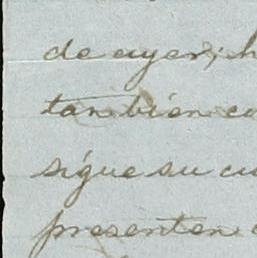 de ayer; h
tan bien co
sigue su cu
presenten